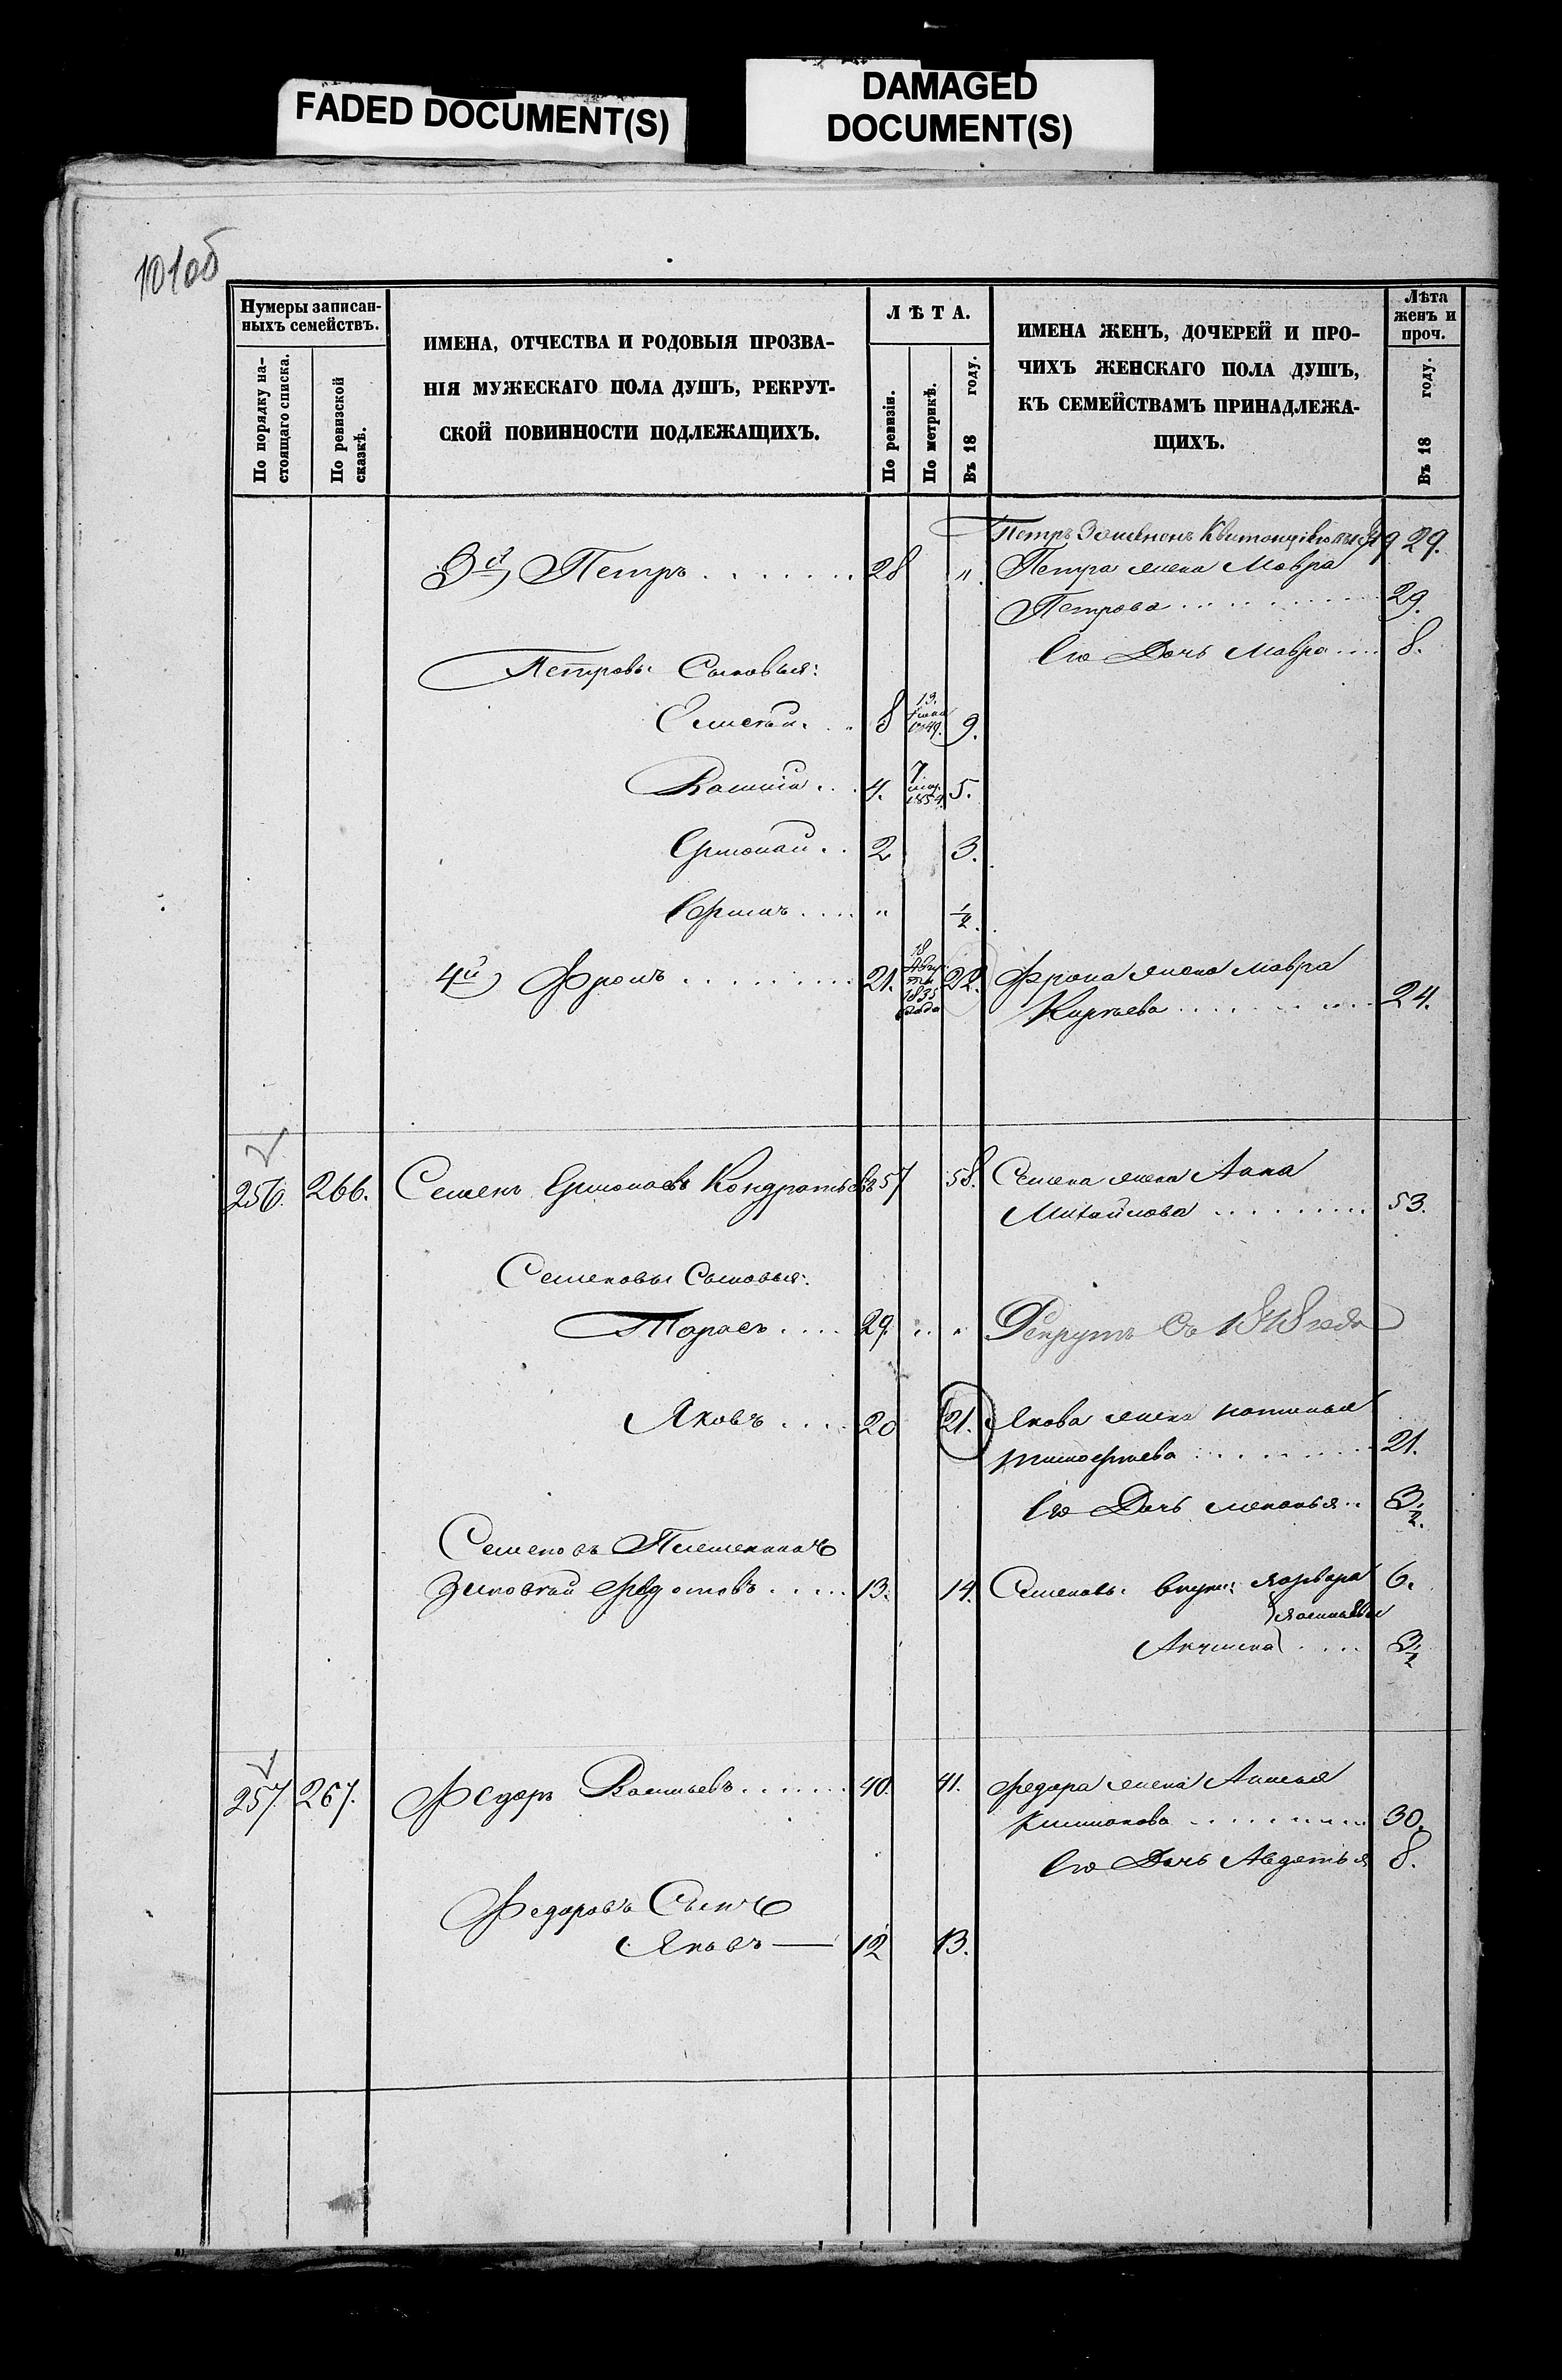 FADED DOCUMENT(S)
DAMAGED
DOCUMENT(S)
101об
Нумеры записан-
ныхъ семействъ.
По порядку на-
стоящаго списка.
По ревизской
сказкѣ.
ИМЕНА, ОТЧЕСТВА И РОДОВЫЯ ПРОЗВА-
НІЯ МУЖЕСКАГО ПОЛА ДУШЪ, РЕКРУТ-
СКОЙ ПОВИННОСТИ ПОДЛЕЖАЩИХЪ.
ЛѢТА.
По ревизіи.
По метрикѣ.
Въ 18 году.
ИМЕНА ЖЕНЪ, ДОЧЕРЕЙ И ПРО-
ЧИХЪ ЖЕНСКАГО ПОЛА ДУШЪ,
КЪ СЕМЕЙСТВАМЪ ПРИНАДЛЕЖА-
ЩИХЪ.
Лѣта
женъ и
проч.
Въ 18 году.
Петръ 29.
3й) Петръ 28 " Петра жена Мавра
Петрова 29.
Его Дочь Мавра 8.
Петровы Сыновья:
8 13. 9.
4. 7 1854. 5.
Ермолай 2 3.
" 1/2.
4й) Фролъ 21. 18 1835 года 22. Фрола жена Мавра
24.
256. 266. Семенъ Ермолаевъ Кондратьевъ 57 58. Семена жена Анна
Михайлова 53.
Семеновы Сыновья:
Тарасъ 29. " " Рекрутъ съ 1848 года
Яковъ 20 21. Якова жена
Тимофеева 21.
Его Дочь 3/2.
Семеновъ Племянникъ
Зиновей 13. 14. Семеновы внуки: Варвара 6.
Акулина 3/2
257. 267. Федоръ Васильевъ 40. 41. Федора жена Анисья
30.
Его Дочь Авдотья 8.
Федоровъ Сынъ
Яковъ 12 13.